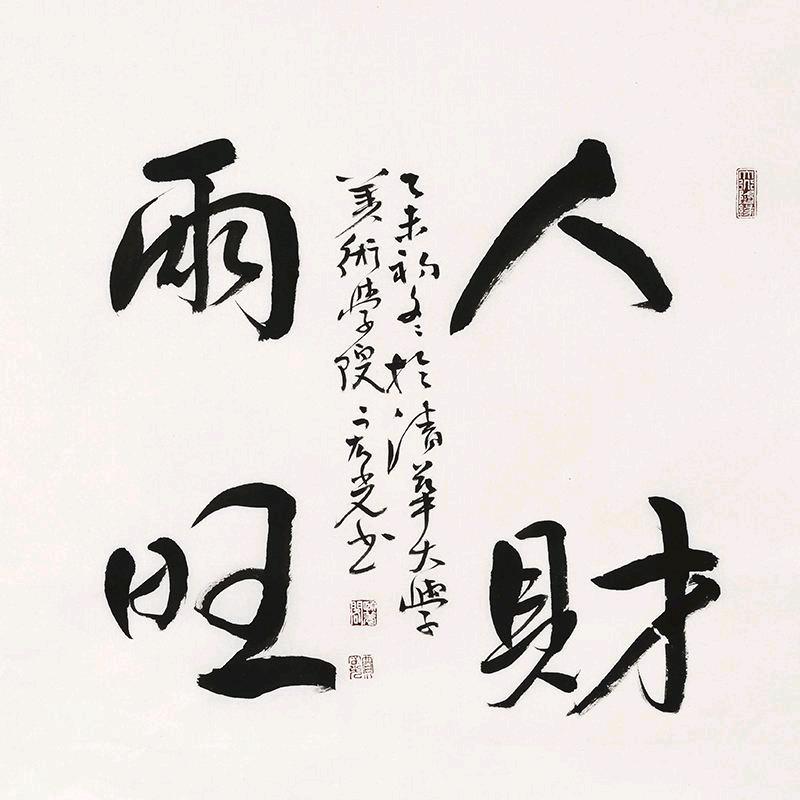 人財
兩旺
乙未初冬於清華大學
美術學院光书